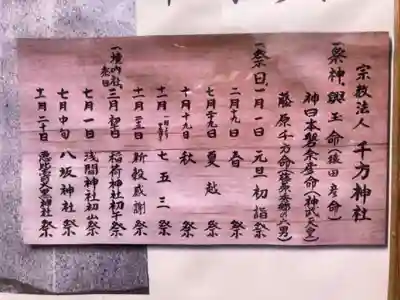 宗教法人 千方神社
一祭神 興玉命(猿田彦命)
神日本磐余彦命(神武天皇)
藤原千方命(藤原秀郷の六男)
一祭日 一月一日 元旦初詣祭
二月十九日 春祭
七月廿九日 夏越祭
十月十九日 秋祭
十一月 七五三祭
十一月廿三日 新穀感謝祭
一境内社祭日 三月 稲荷神社初午祭
七月一日 浅間神社初山祭
七月中旬 八坂神社祭
十一月二十日 恵比寿大黒神社祭